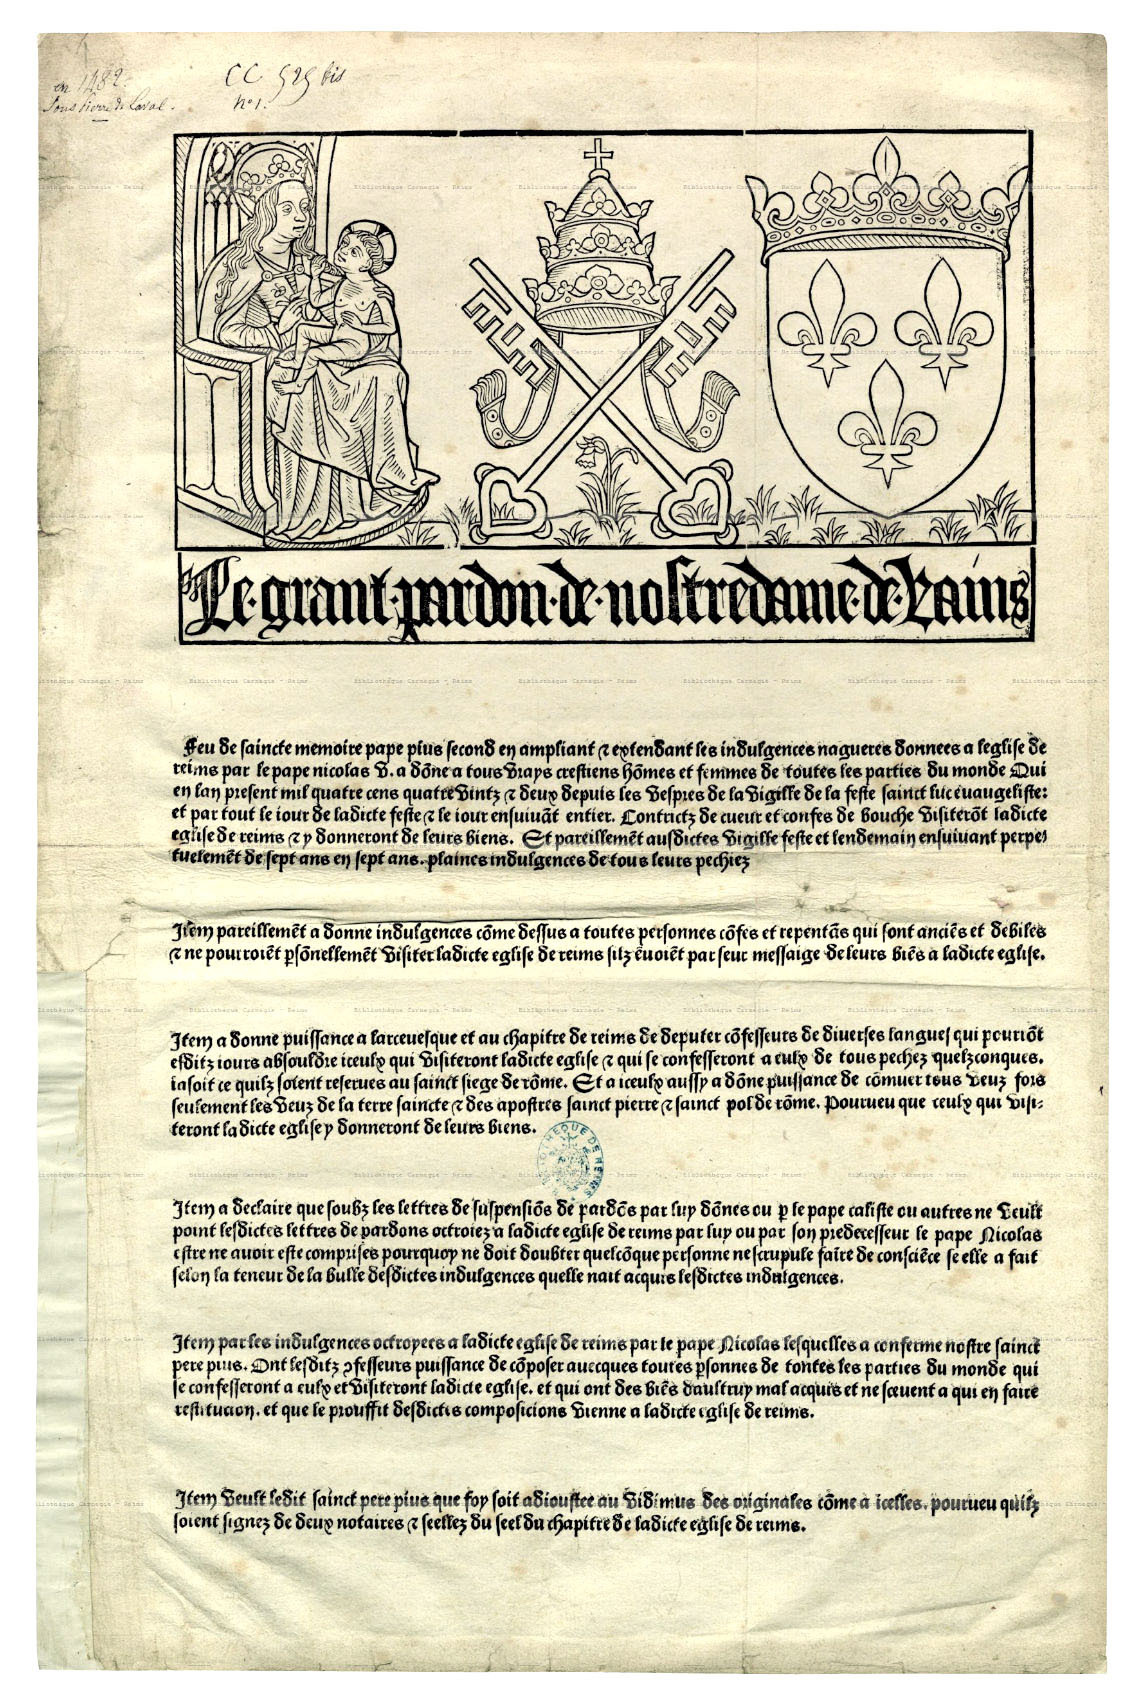 en 1482.
sous pierre de Laval.
CC 525 bis
n° 1.
Le·grant·pardon·de·nostredame·de·Rains
Feu de saincte memoire pape pius second en ampliant ⁊ extendant les indulgences nagueres donnees a leglise de
reims par le pape nicolas v. a dōne a tous vrays crestiens hōmes et femmes de toutes les parties du monde Qui
en lan present mil quatre cens quatre vintz ⁊ deux depuis les vespres de la vigille de la feste sainct luc euangeliste:
et par tout le iour de ladicte feste ⁊ le iour ensuiuāt entier. Contrictz de cueur et confes de bouche visiterōt ladicte
eglise de reims ⁊ y donneront de leurs biens. Et pareillemēt ausdictes vigille feste et lendemain ensuiuant perpe-
tuelemēt de sept ans en sept ans. plaines indulgences de tous leurs pechiez
Item pareillemēt a donne indulgences cōme dessus a toutes personnes cōfes et repentās qui sont anciēs et debiles
⁊ ne pourroiēt psōnellemēt visiter ladicte eglise de reims silz ēuoiēt par seur messaige de leurs biēs a ladicte eglise.
Item a donne puissance a larceuesque et au chapitre de reims de deputer cōfesseurs de diuerses langues qui pourrōt
esditz iours absouldre iceulx qui visiteront ladicte eglise ⁊ qui se confesseront a eulx de tous pechez quelzconques.
iasoit ce quilz soient reserues au sainct siege de rōme. Et a iceulx aussy a dōne puissance de cōmuer tous veuz fors
seulement les veuz de la terre saincte ⁊ des apostres sainct pierre ⁊ sainct pol de rōme. Pourueu que ceulx qui visi-
teront ladicte eglise y donneront de leurs biens.
BIBLIOTHEQUE DE REIMS
Item a declaire que soubz les lettres de suspensiōs de pardōs par luy dōnes ou p le pape caliste ou autres ne veult
point lesdictes lettres de pardons octroiez a ladicte eglise de reims par luy ou par son predecesseur le pape Nicolas
estre ne auoir este comprises pourquoy ne doit doubter quelcōque personne ne scrupule faire de consciēce se elle a fait
selon la teneur de la bulle desdictes indulgences quelle nait acquis lesdictes indulgences.
Item par les indulgences octroyees a ladicte eglise de reims par le pape Nicolas lesquelles a conferme nostre sainct
pere pius. Ont lesditz ↄfesseurs puissance de cōposer auecques toutes psonnes de toutes les parties du monde qui
se confesseront a eulx et visiteront ladicte eglise. et qui ont des biēs daultruy mal acquis et ne sceuent a qui en faire
restitucion. et que le prouffit desdictes composicions vienne a ladicte eglise de reims.
Item veult ledit sainct pere pius que foy soit adioustee au vidimus des originales cōme a icelles. pourueu quilz
soient signez de deux notaires ⁊ seellez du seel du chapitre de ladicte eglise de reims.